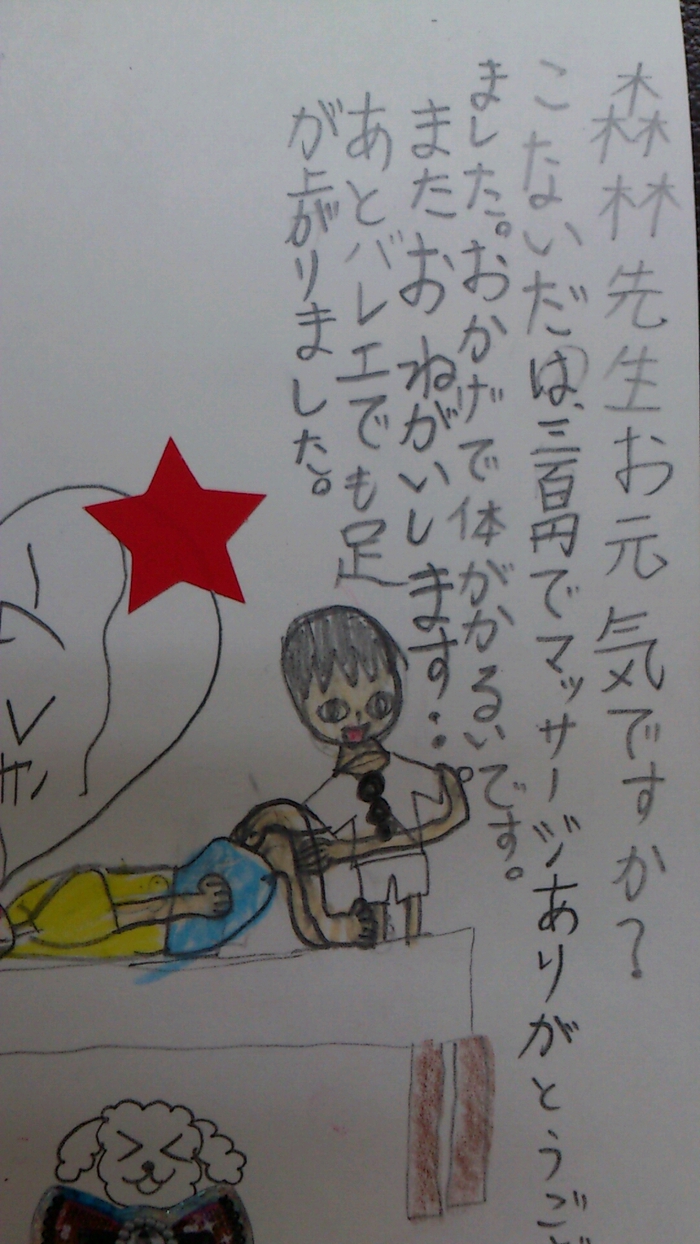 森林先生お元気ですか?
こないだは、三百円でマッサージありがとうご
ました。おかげで体がかるいです。
またおねがいします:。
あとバレエでも足
が上がりました。